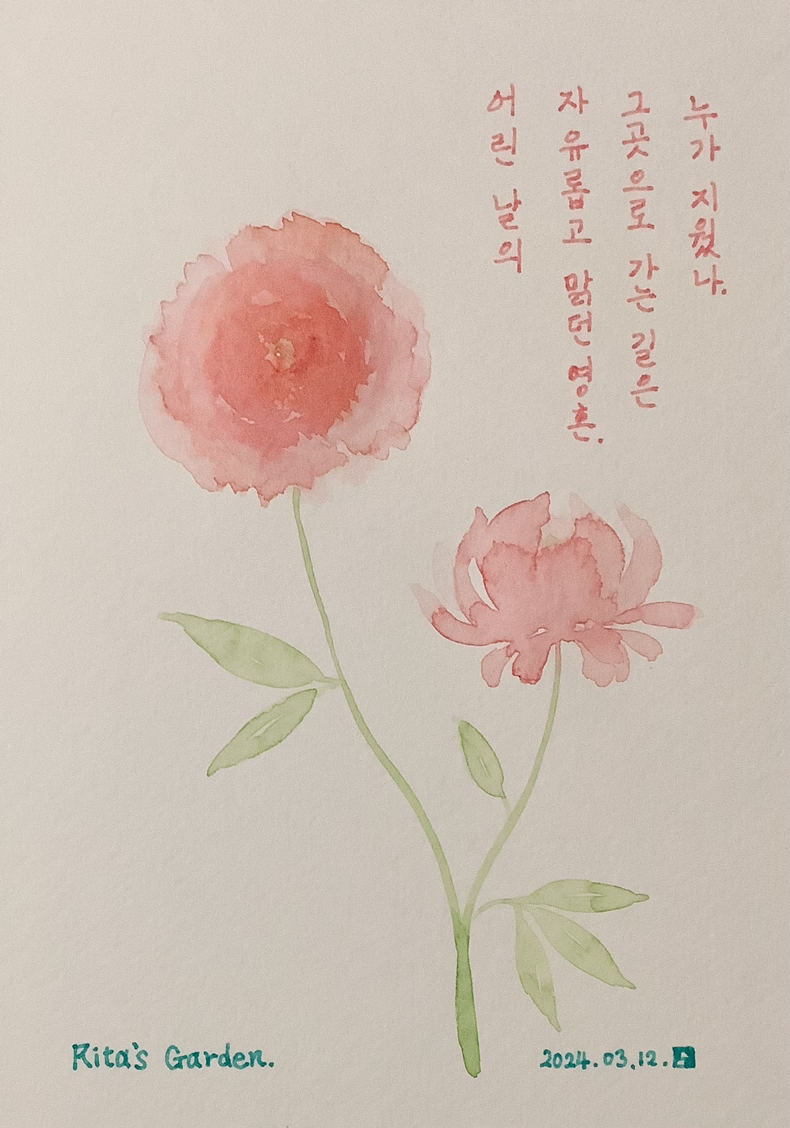 어린 날의
자유롭고 맑던 영혼.
그곳으로 가는 길은
누가 지웠나.
Rita's Garden.
2024.03.12.